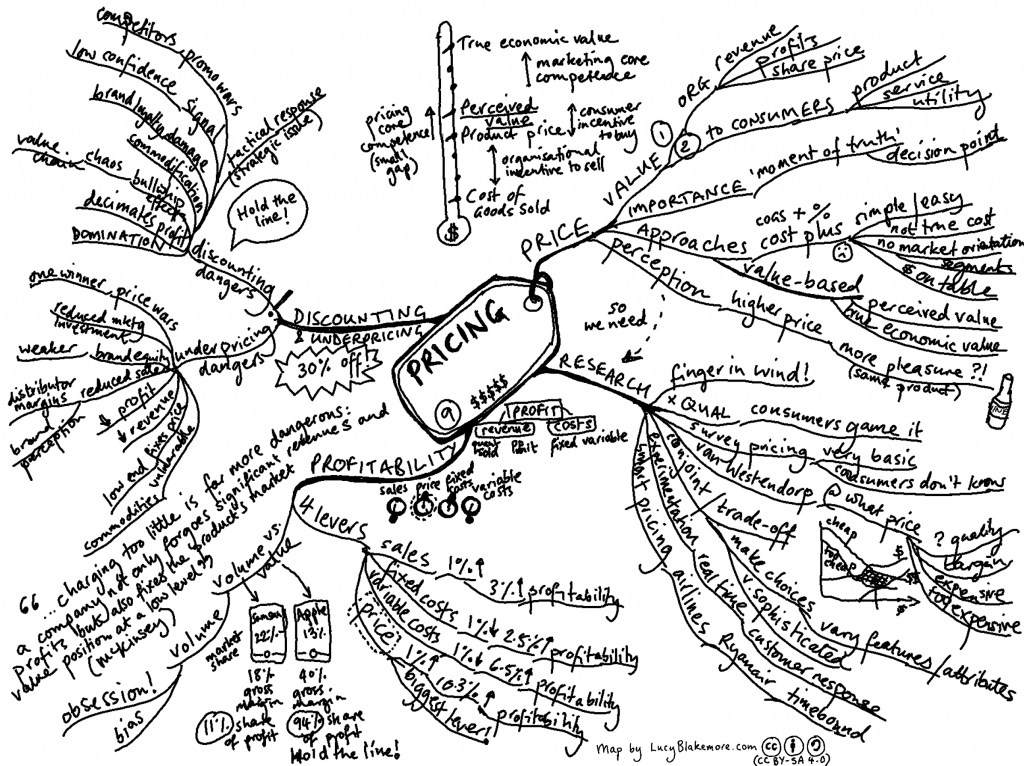 PRICING
9
$$$$$
PRICE
VALUE
1
ORG revenue
profits
share price
2
to CONSUMERS
product
service
utility
IMPORTANCE 'moment of truth'
decision point
Approaches
cost plus
COGS + %
simple/easy
not true cost
no market orientation
segments
$ on table
value-based
perceived value
true economic value
perception
higher price
more
pleasure?!
(same product)
so
we need
True economic value
marketing core
competence
Perceived
value
Product price
consumer
incentive
to buy
pricing
core
competence
(small
gap)
organisational
incentive to sell
Cost of
Goods Sold
$
RESEARCH
finger in wind!
x QUAL consumers game it
survey pricing very basic
consumers don't know
van Westendorp @ what price
? quality
bargain
expensive
too expensive
cheap
too
cheap
$
$$
$
conjoint/trade-off
make choices
v. sophisticated
vary features/attributes
experimentation real time customer response
airlines Ryanair timebound
PROFIT
revenue
costs
fixed variable
PROFITABILITY
sales
price
fixed
costs
variable
costs
4 levers
sales 1%↑
3%↑ profitability
fixed costs 1%↓
2.5%↑ profitability
variable costs 1%↓
6.5%↑ profitability
price 1%↑
10.3%↑ profitability
biggest lever!
volume vs.
value
volume
obsession!
bias
Samsung
22%
Apple
13%
market
share
18%
gross
margin
11% share
of profit
40%
gross
margin
94% share
of profit
Hold the line!
"...charging too little is far more dangerous:
a company not only forgoes significant revenues and
profits but also fixes the product's market
value position at a low level"
(McKinsey)
DISCOUNTING
& UNDERPRICING
30% off!
discounting
dangers
Hold the
line!
tactical response
(strategic issue)
competitors promo wars
low confidence signal
brand loyalty damage
commodification
value chain chaos bullwhip
effect
decimates profit
DOMINATION
underpricing
dangers
one winner price wars
reduced mktg
investment
weaker brand equity
distributor
margins reduced sales
↓ profit
↓ revenue
brand
perception
low end fixes price
vulnerable
commodities
Map by LucyBlakemore.com
(CC BY-SA 4.0)